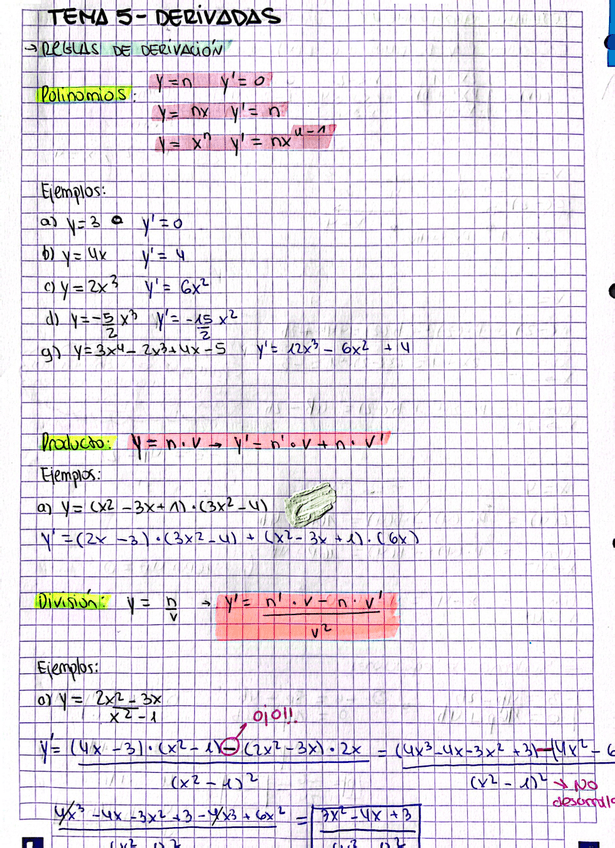 TEMA 5 - DERIVADAS
→ REGLAS DE DERIVACIÓN
Polinomios: y = n y' = 0
y = nx y' = n
y = xⁿ y' = nxⁿ⁻¹
Ejemplos:
a) y = 3 y' = 0
b) y = 4x y' = 4
c) y = 2x³ y' = 6x²
d) y = -5/2 x³ y' = -15/2 x²
g) y = 3x⁴ - 2x³ + 4x - 5 y' = 12x³ - 6x² + 4
Producto: y = n · v → y' = n' · v + n · v'
Ejemplos:
a) y = (x² - 3x + 1) · (3x² - 4)
y' = (2x - 3) · (3x² - 4) + (x² - 3x + 1) · (6x)
División: y = n/v → y' = n' · v - n · v' / v²
Ejemplos:
a) y = 2x² - 3x / x² - 1
OJO!!
y' = (4x - 3) · (x² - 1) - (2x² - 3x) · 2x / (x² - 1)² = (4x³ - 4x - 3x² + 3) - (4x² - 6 / (x² - 1)²
→ NO
4x³ - 4x - 3x² + 3 - 4x³ + 6x² = 3x² - 4x + 3